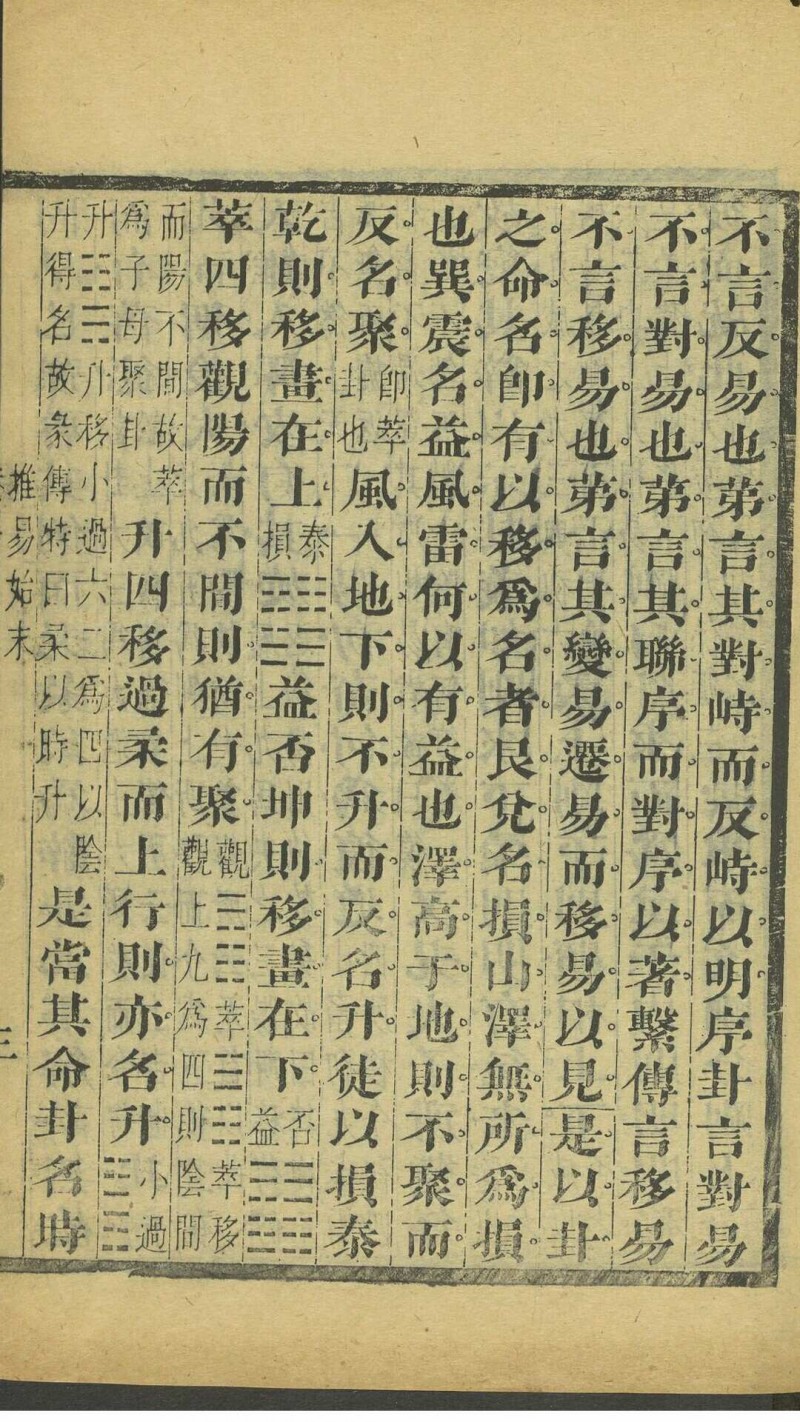 不言反易也第言其對峙而反峙以明序卦言對易
不言對易也第言其聯序而對序以著繫傳言移易
不言移易也第言其變易遷易而移易以見是以卦
之命名卽有以移爲名者艮兌名損山澤無所爲損
也巽震名益風雷何以有益也澤高于地則不聚而
反名聚卽萃卦也風入地下則不升而反名升徒以損泰
乾則移畫在上泰䷊損䷨益否坤則移畫在下否䷋益䷩
萃四移觀陽而不間則猶有聚觀䷓萃䷬萃移觀上九爲四則陰間
而陽不間故萃爲子母聚卦升四移過柔而上行則亦名升小過䷽
升䷭升移小過六二爲四以陰升得名故彖傳特曰柔以時升是當其命卦名時
推易始末
三